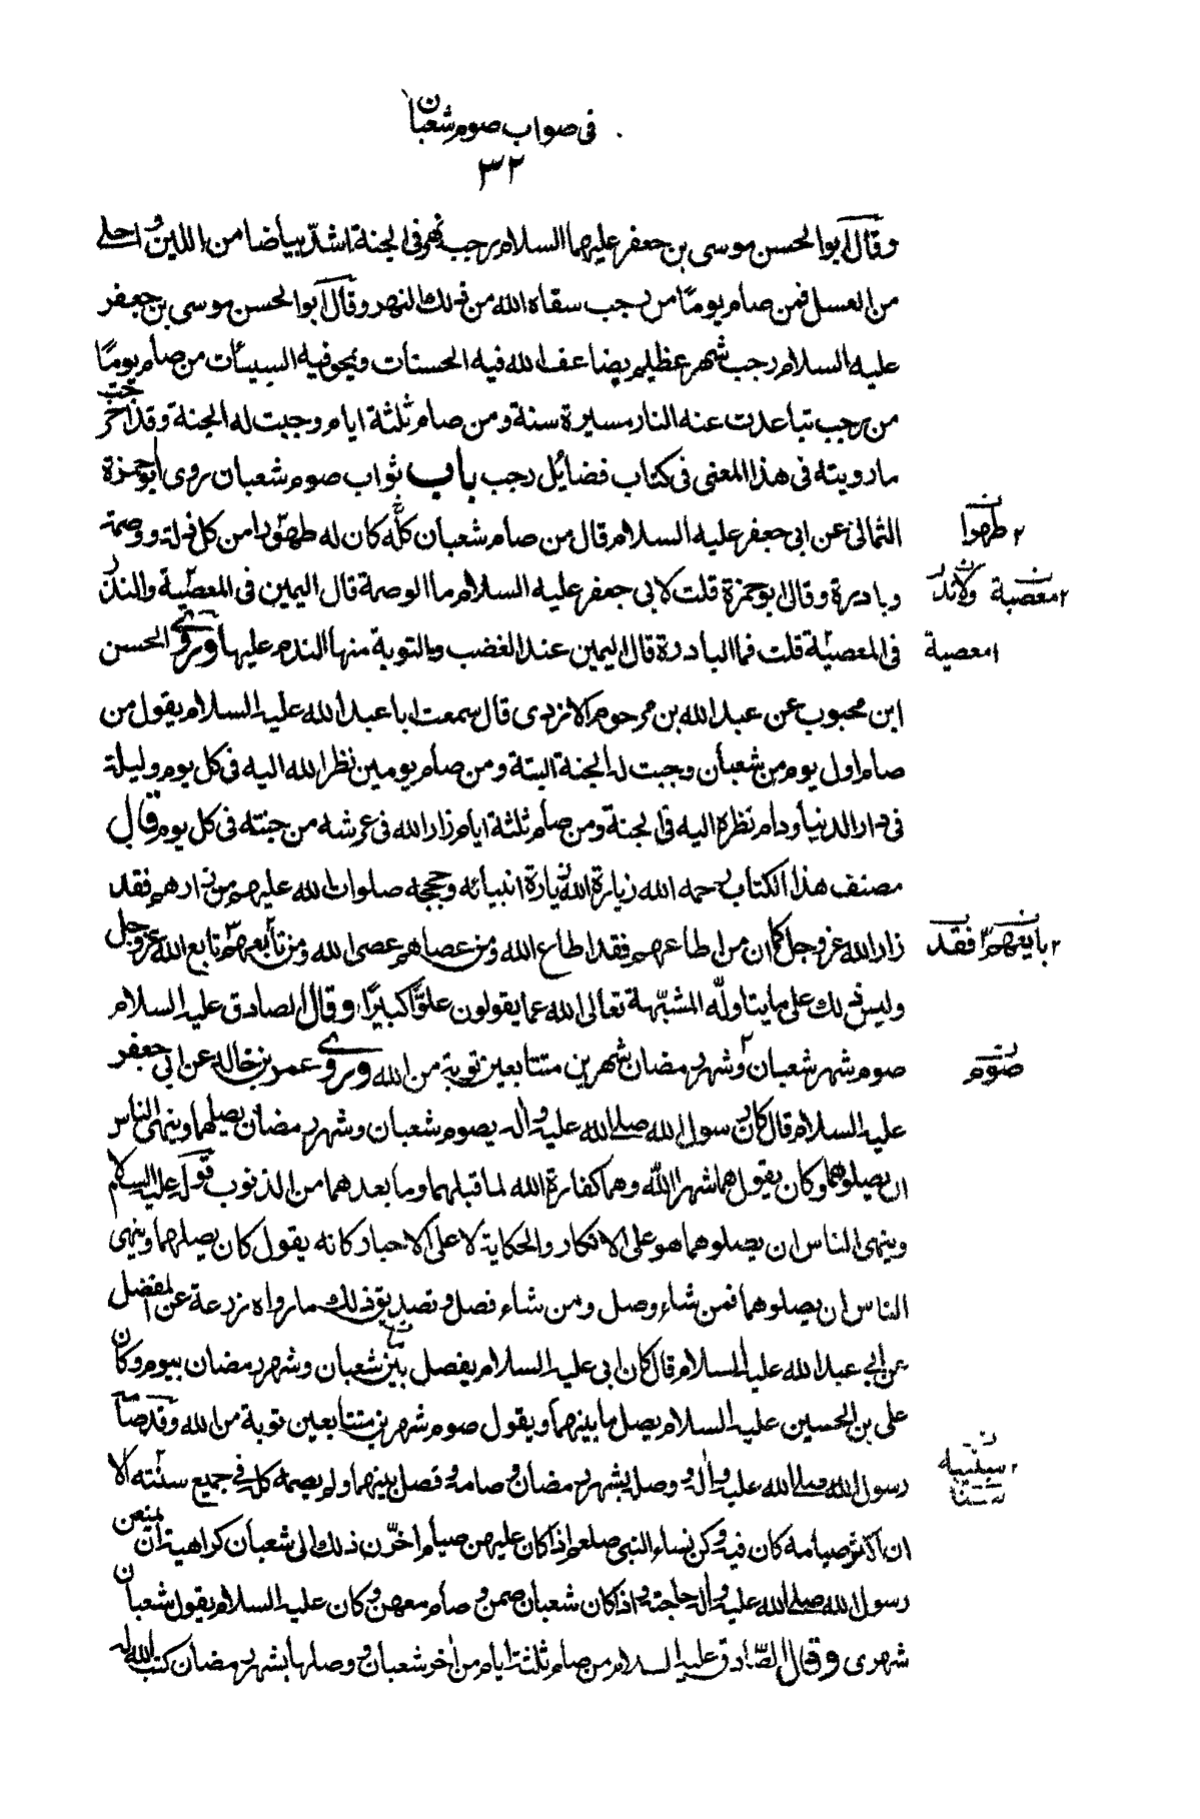 فى صواب صوم شعبان
٣٢
وقال ابوالحسن موسى بن جعفر عليهما السلام رجب نهر فى الجنة اشدّ بياضا من اللبن و احلى
من العسل فمن صام يومًا من رجب سقاه الله من ذلك النهر وقال ابوالحسن موسى بن جعفر
عليه السلام رجب شهر عظيم يضاعف الله فيه الحسنات ويمحو فيه السيئات من صام يومًا
من رجب تباعدت عنه النار مسيرة سنة ومن صام ثلثة ايام وجبت له الجنة وقد اخرجت
ما رويته فى هذا المعنى فى كتاب فضائل رجب باب ثواب صوم شعبان روى ابو حمزة
الثمالى عن ابى جعفر عليه السلام قال من صام شعبان كلّه كان له طهورا من كل زلة ووصمة
٢ طهوا
وبادرة وقال ابو حمزة قلت لابى جعفر عليه السلام ما الوصمة قال اليمين فى المعصية والنذر
٢ معصية ولانذر
فى المعصيّة قلت فما البادرة قال اليمين عند الغضب و بالتوبة منها الندم عليها وروى الحسن
١ معصية
ابن محبوب عن عبد الله بن مرحوم الازدى قال سمعت ابا عبد الله عليه السلام يقول من
صام اول يوم من شعبان وجبت له الجنة البتة ومن صام يومين نظر الله اليه فى كل يوم وليلة
فى دار الدنيا ودام نظره اليه فى الجنة ومن صام ثلثة ايام زار الله فى عرشه من جنته فى كل يوم قال
مصنف هذا الكتاب رحمه الله زيارة الله زيارة انبيائه وحججه صلوات الله عليهم من زارهم فقد
زار الله عزوجل كما ان من اطاعهم فقد اطاع الله ومن عصاهم عصى الله ومن تابعهم تابع الله عزوجل
٢ بايعهم فقد
وليس ذلك على ما يتاولّه المشبّهة تعالى الله عما يقولون علوًّا كبيرًا وقال الصادق عليه السلام
صوم شهر شعبان و شهر رمضان شهرين متتابعين توبة من الله وروى عمرو بن خالد عن ابى جعفر
صوم
عليه السلام قال كان رسول الله صلى الله عليه و اله يصوم شعبان وشهر رمضان يصلهما وينهى الناس
ان يصلوهما وكان يقول هما شهرا الله وهما كفارة الله لما قبلهما وما بعدهما من الذنوب قوله عليه السلام
وينهى الناس ان يصلوهما هو على الانكار والحكاية لا على الاخبار كانه يقول كان يصلهما وينهى
الناس ان يصلوهما فمن شاء وصل ومن شاء فصل و تصديق ذلك ما رواه زرعة عن المفضل
عن ابى عبد الله عليه السلام قال كان ابى عليه السلام يفصل بين شعبان وشهر رمضان بيوم وكان
على بن الحسين عليه السلام يصل ما بينهما ويقول صوم شهرين متتابعين توبة من الله وقد صام
رسول الله صلى الله عليه و اله وصل بشهر رمضان و صامه و فصل بينهما ولم يصمه كله فى جميع سنته الا
٢ سنينه
ان اكثر صيامه كان فيه وكن نساء النبى صلعم اذا كان عليهن صيام اخّرن ذلك الى شعبان كراهية ان يمنعن
رسول الله صلى الله عليه و اله حاجته و اذا كان شعبان صمن و صام معهن و كان عليه السلام يقول شعبان
شهرى وقال الصّادق عليه السلام من صام ثلثة ايام من اخر شعبان و وصلها بشهر رمضان كتب الله له